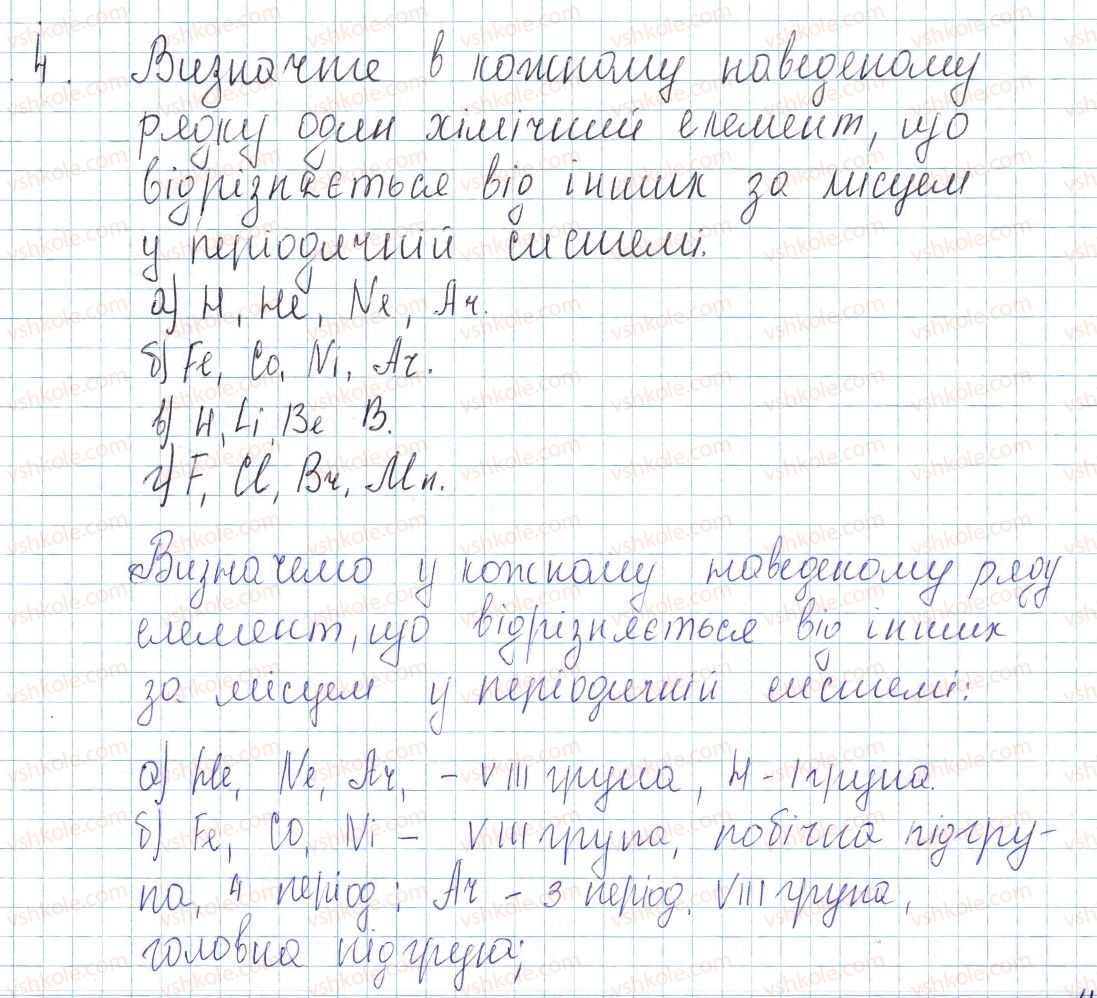 4. Визначте в кожному наведеному
рядку один хімічний елемент, що
відрізняється від інших за місцем
у періодичній системі.
а) H, He, Ne, Ar.
б) Fe, Co, Ni, Ar.
в) H, Li, Be B.
г) F, Cl, Br, Mn.
Визначемо у кожному наведеному ряду
елемент, що відрізняється від інших
за місцем у періодичній системі:
а) He, Ne, Ar, - VIII група, H - I група.
б) Fe, CO, Ni - VIII група, побічна підгру-
па, 4 період; Ar - 3 період, VIII група,
головна підгрупа;